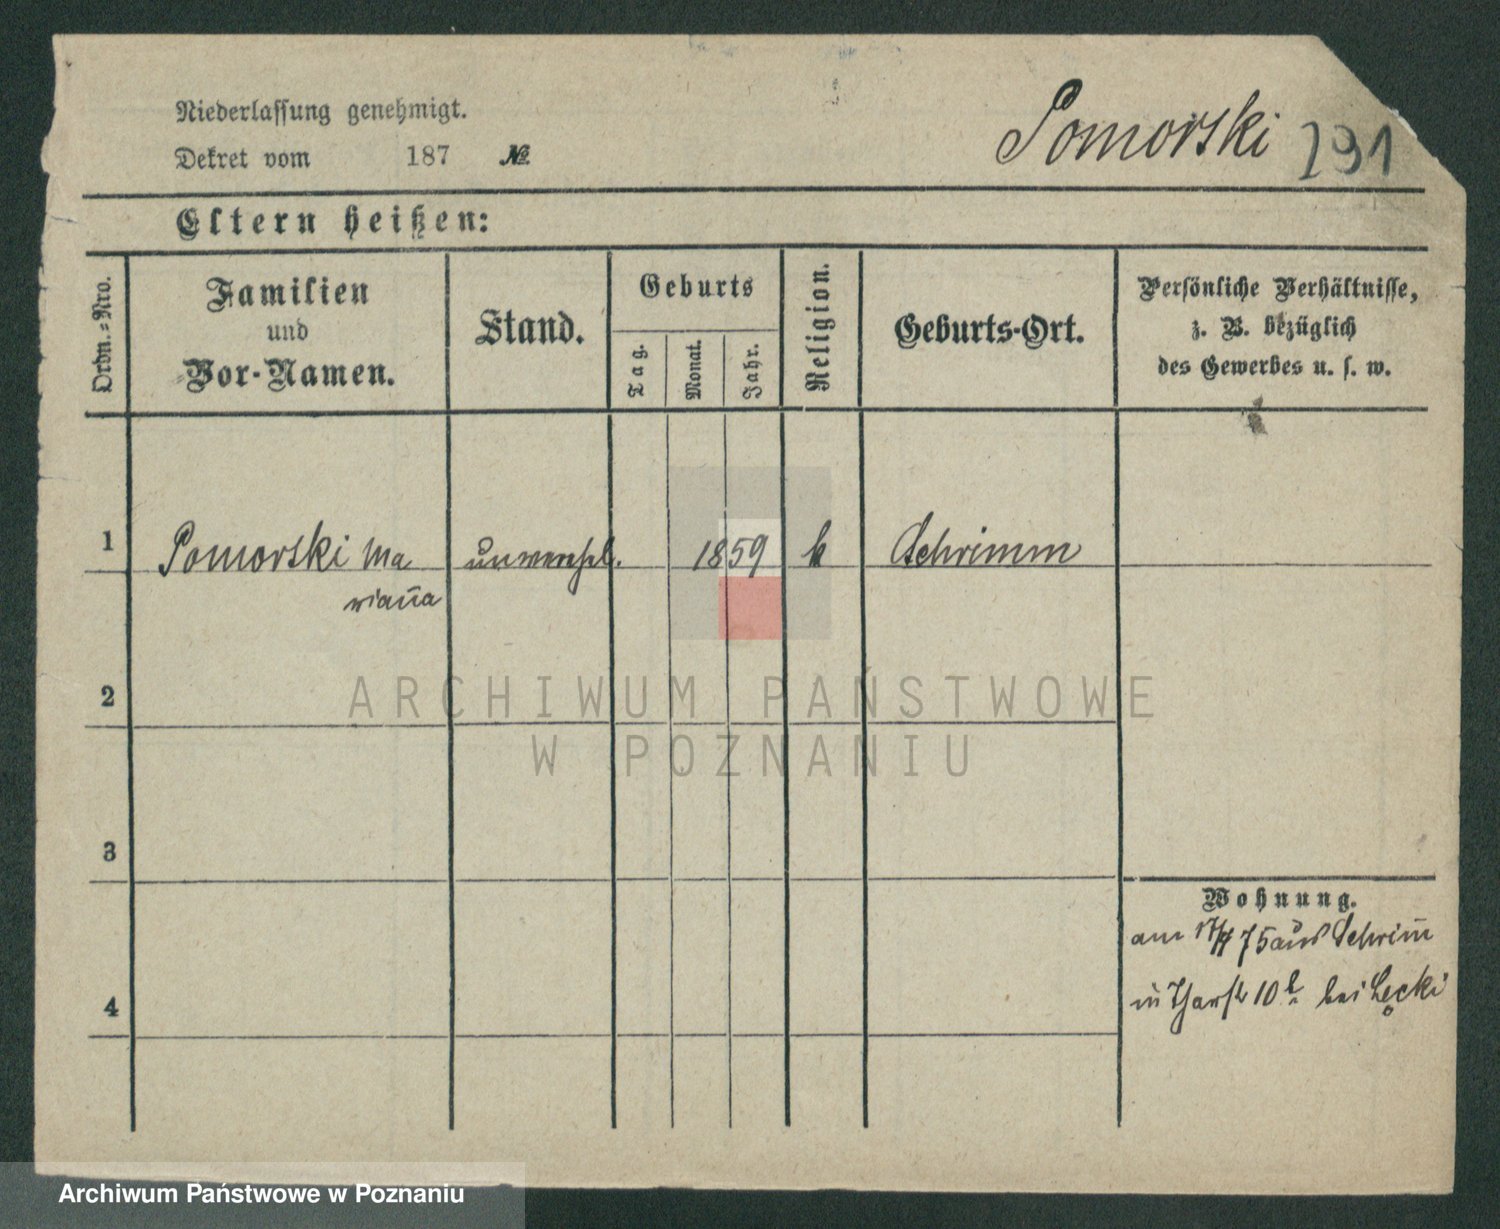 Niederlassung genehmigt.
Dekret vom 187 №
Pomorski 291
Eltern heißen:
Ordn.=Nro.
Familien
und
Vor-Namen.
Stand.
Geburts
Tag.
Monat.
Jahr.
Religion.
Geburts-Ort.
Persönliche Verhältnisse,
z. B. bezüglich
des Gewerbes u. s. w.
1 Pomorski Ma unverehel. 1859 k Schrimm
riana̅
2
3
4
Wohnung.
am 17/ 75 aus Schrim̅
in 10 bei Łęcki
ARCHIWUM PAŃSTWOWE
W POZNANIU
Archiwum Państwowe w Poznaniu